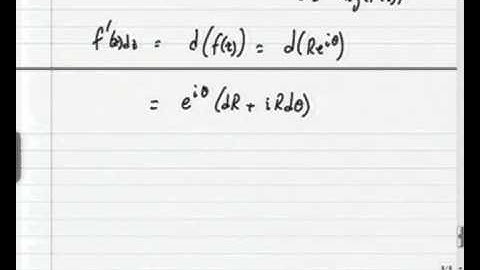 f'(z)dz = d(f(z)) = d(Re^{iθ})
= e^{iθ}(dR + iRdθ)